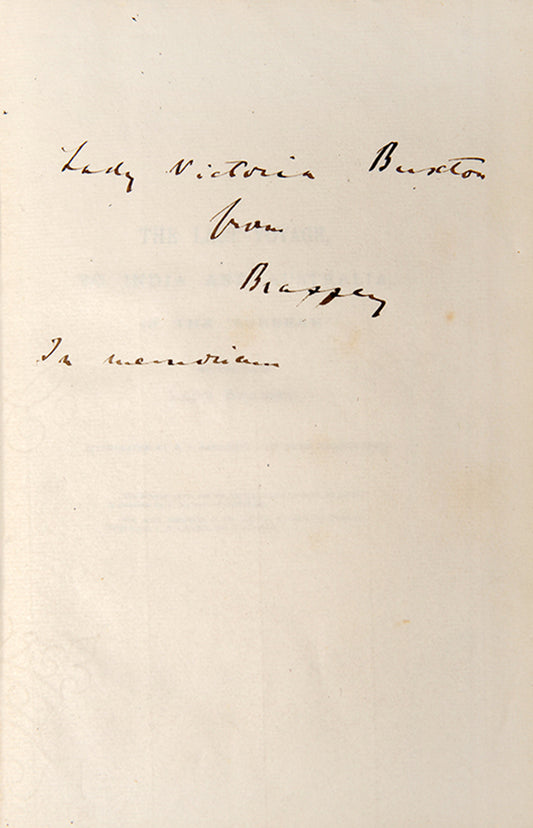 Lady Victoria Buxton
from
Brassey
In memoriam